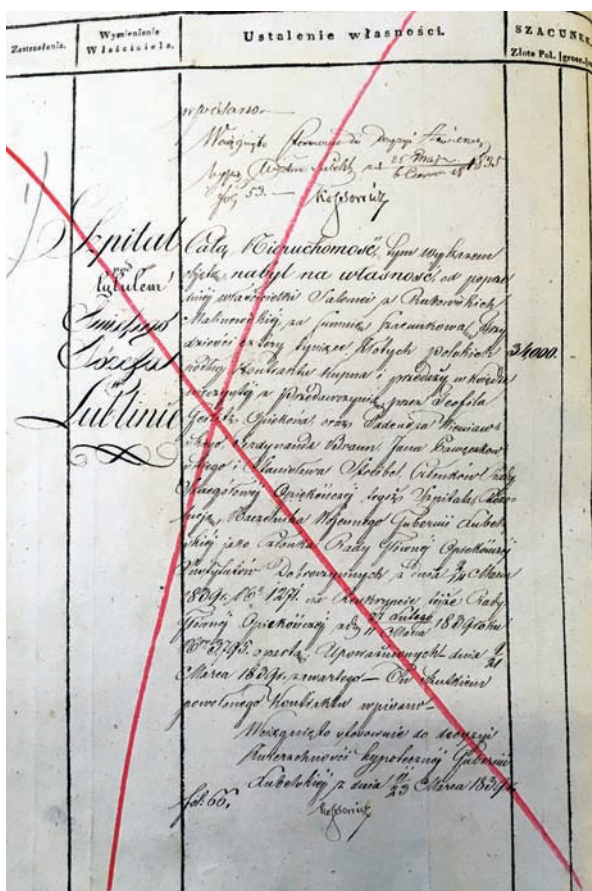 Zastrzeżenia.
Wymienienie
Właściciela.
Ustalenie własności.
SZACUNEK
Złote Pol. grosze
wpisano
Wciągnięto stosownie do decyzji
25 Maja
6 Czerwca 1835
fol. 53.
1)
Szpital
pod
tytułem
Świętego
Józefa
w
Lublinie
Całą Nieruchomość, tym wykazem
objętą nabył na własność, od poprze
dniej właścicielki Salomei z Rutkowskich
Malinowskiej za summę szacunkową trzy
dzieści cztery tysiące Złotych polskich
34000.
podług Kontraktu kupna i przedaży w księdze
wieczystej z Przedawczynią przez Teofila
Opiekuna, oraz Tadeusza Wieniaw
skiego, Ferdynanda Braun, Jana
skiego i Stanisława Członków Rady
Szczegółowej Opiekuńczej, tegoż Szpitala
Naczelnika Wojennego Gubernii Lubel
skiej jako Członka Rady Głównej Opiekuńczej
Instytutów Dobroczynnych z dnia Marca
1839 r. No 1271. na Reskrypcie tejże Rady
Głównej Opiekuńczej z dnia 27 Lutego
11 Marca 1839 roku
No 3795. opartą, Upoważnionych dnia 9
21
Marca 1839 r. zawartego — Co skutkiem
powołanego Kontraktu wpisano
Wciągnięto stosownie do decyzji
Zwierzchności hypotecznej Gubernii
Lubelskiej z dnia 11
23 Marca 1839 r.
fol. 66.